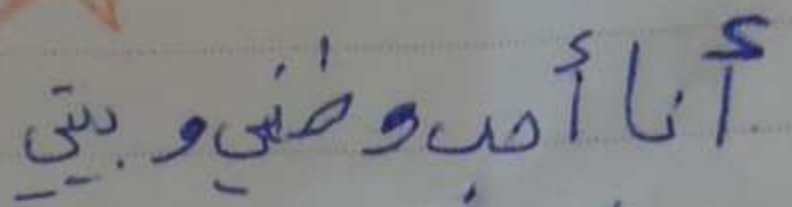 أنا أحب وطني و بيتي